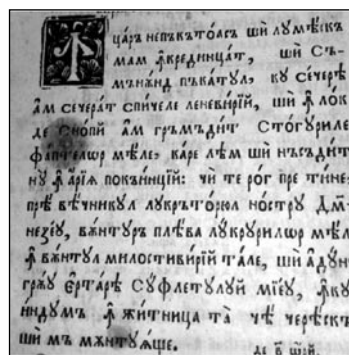 Ꙟ царъ непъкътоасъ ши лꙋмѣскъ
мам ꙟкрединцат, ши съ-
мънѫнд пъкатꙋл, кꙋ сечерѣ
ам сечерат спичеле леневирїй, ши ꙟ лок
де снопй ам гръмъдит стогꙋриле
фаптелѡр мѣле, каре лѣм ши нъсъдит
нꙋ ꙟ арїѧ покъинцїй: чи те рог пре тине,
прѣ вѣчникꙋл лꙋкръторюл ностру Дм-
незеꙋ, вѫнтꙋръ плѣва лꙋкрꙋрилѡр мѣл
ꙟ вѫнтꙋл милостивирїй тале, ши адꙋн
грѫꙋ єртарѣ сꙋфлетꙋлꙋй мїеꙋ, ꙟкꙋ
индꙋмъ ꙟ житница та чѣ черѣск
ши мъ мѫнтꙋѧще.
де в҃ ѡрй.